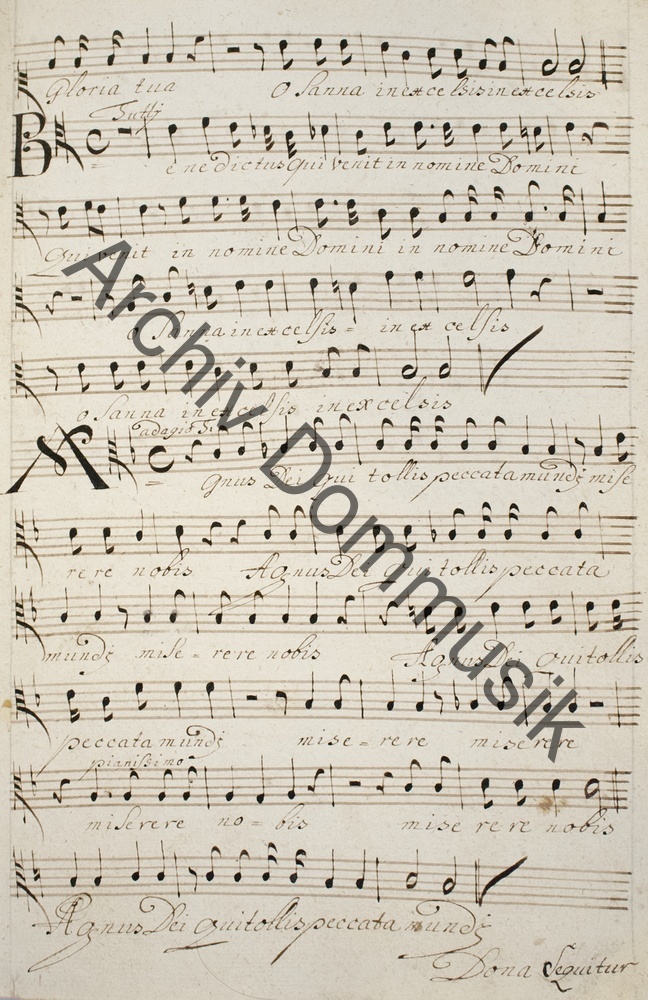 Gloria tua O Sanna in excelsis in excelsis
Tutti
Benedictus qui venit in nomine Domini
Qui venit in nomine Domini in nomine Domini
o Sanna in excelsis = in ex celsis
o Sanna in excelsis in excelsis
adagio
Agnus Dei qui tollis peccata mundi mise
rere nobis Agnus Dei qui tollis peccata
mundi mise = rere nobis Agnus Dei qui tollis
peccata mundi mise = rere miserere
pianissimo
miserere no = bis mise rere nobis
Agnus Dei qui tollis peccata mundi
Dona Sequitur
Archiv Dommusik